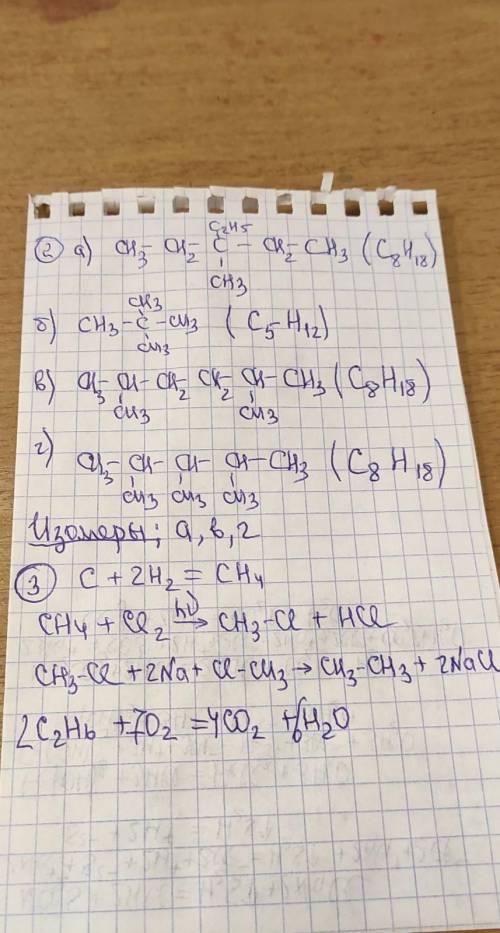 C₂H₅
② а) CH₃ - CH₂ - C - CH₂ - CH₃ (C₈H₁₈)
CH₃
CH₃
б) CH₃ - C - CH₃ (C₅H₁₂)
CH₃
в) CH₃ - CH - CH₂ - CH₂ - CH - CH₃ (C₈H₁₈)
CH₃ CH₃
г) CH₃ - CH - CH - CH - CH₃ (C₈H₁₈)
CH₃ CH₃ CH₃
Изомеры; а, в, г
③ C + 2H₂ = CH₄
CH₄ + Cl₂ →hν CH₃-Cl + HCl
CH₃-Cl + 2Na + Cl-CH₃ → CH₃-CH₃ + 2NaCl
2C₂H₆ + 7O₂ = 4CO₂ + 6H₂O